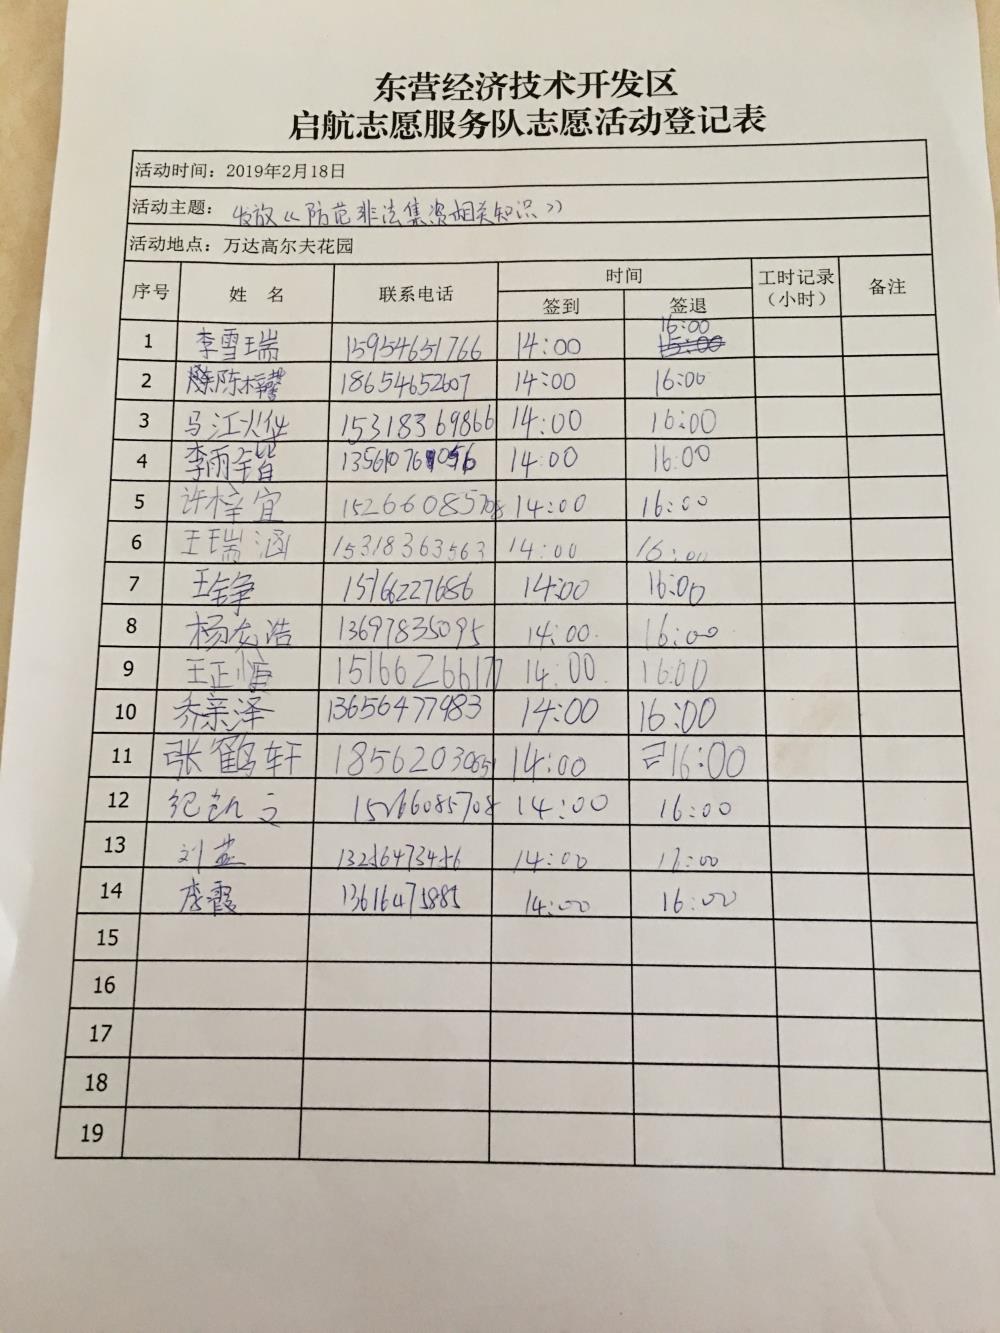 东营经济技术开发区
启航志愿服务队志愿活动登记表
活动时间：2019年2月18日
活动主题：发放《防范非法集资相关知识》
活动地点：万达高尔夫花园
序号 姓 名 联系电话 时间 工时记录（小时） 备注
签到 签退
1 李雪瑞 15954651766 14:00 16:00
2 18654652607 14:00 16:00
3 马江 15318369866 14:00 16:00
4 李雨锴 14:00 16:00
5 许梓宜 15266085708 14:00 16:00
6 王瑞涵 15318363563 14:00 16:00
7 王铮 15166227686 14:00 16:00
8 杨浩 13697835095 14:00. 16:00
9 王正恒 15166266177 14:00. 16:00
10 乔亲泽 13656477983 14:00 16:00
11 张鹤轩 18562030651 14:00 16:00
12 纪 文 15266085708 14:00 16:00
13 刘燕 14:00 17:00
14 李霞 13616475885 14:00 16:00
15
16
17
18
19